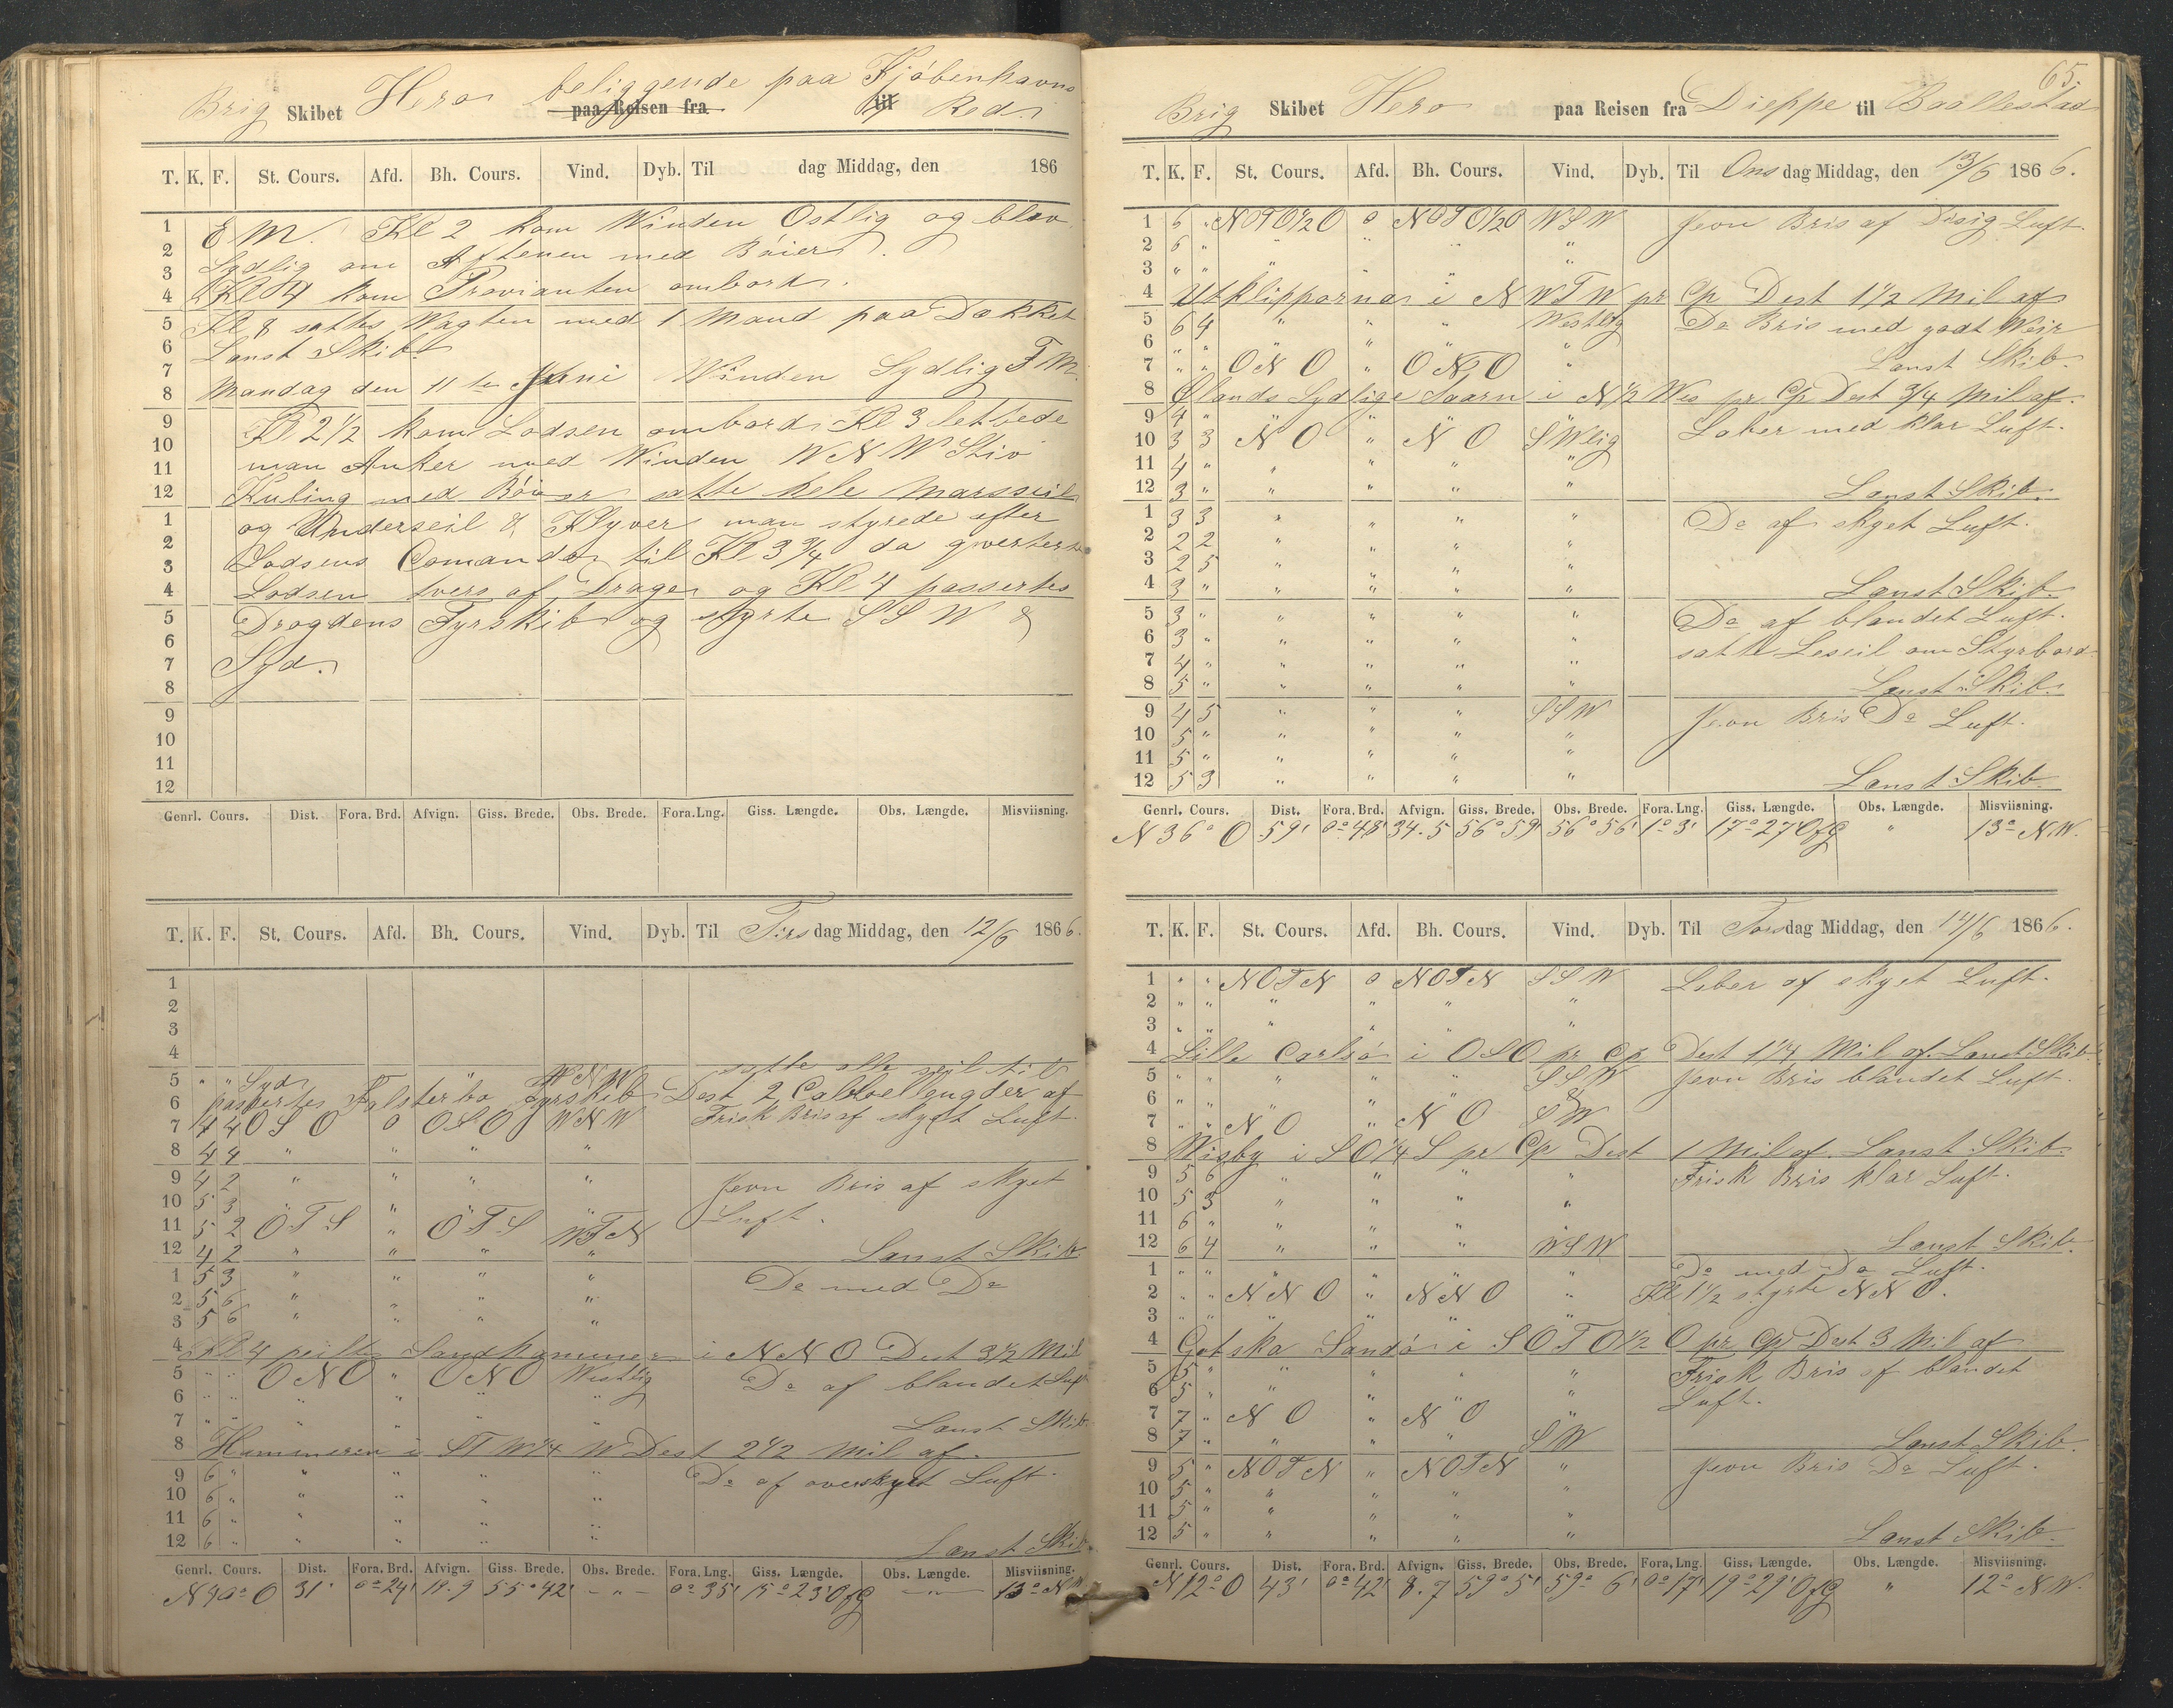 Brig Skibet Hero beliggende paa Kjöbenhavns
paa Reisen fra til Red.
T. K. F. St. Cours. Afd. Bh. Cours. Vind. Dyb. Til dag Middag, den 186
1 E M. Kl 2 kom Winden Ostlig og blev
2 Sydlig om Aftenen med Böier.
3
4 Kl 4 kom Provianten ombord.
5 Kl 8 sattes Wagten med 1 Mand paa Dækket
6 Lænst Skib
7
8 Mandag den 11te Juni Winden Sydlig F M.
9 Kl 2 1/2 kom Lodsen ombord Kl 3 lettede
10 man Anker med Winden W N W Stiv
11
12 Kuling med Böier satte hele Marsseil
1 og Underseil & Klyver man styrede efter
2
3 Lodsens Comando til Kl 3 3/4 da qverterte
4 Lodsen tvers af Dragen og Kl 4 passertes
5 Drogdens Fyrskib og styrte S S W &
6
7 Syd.
8
9
10
11
12
Genrl. Cours. Dist. Fora. Brd. Afvign. Giss. Brede. Obs. Brede. Fora. Lng. Giss. Længde. Obs. Længde. Misviisning.
T. K. F. St. Cours. Afd. Bh. Cours. Vind. Dyb. Til Tirs dag Middag, den 12/6 1866.
1
2
3
4 satte alle seil til
5 " " Syd " W N W
6 passertes Falsterbo Fyrskib Dest 2 Cabbellengder af
7 4 4 O S O 0 O S O W N W Frisk Bris af skyet Luft.
8 4 4 " " " "
9 4 2 " " " " Jevn Bris af skyet
10 5 3 " " " " Luft.
11 5 2 O T S " O T S W T N
12 4 2 " " " " Lænst Skib.
1 5 3 " " " " Do med Do
2 5 6 " " " "
3 5 6 " " " "
4 Kl 4 peiltes Sandhammer i N N O Dest 3 1/2 Mil
5 " " O N O " O N O Westlig Do af blandet Luft
6 " " " " " "
7 " " " " " " Lænst Skib.
8 Hammeren i S T W 1/4 W Dest 2 1/2 Mil af.
9 6 " " " " " Do af overskyet Luft.
10 6 " " " " "
11 6 " " " " "
12 6 " " " " " Lænst Skib
Genrl. Cours. Dist. Fora. Brd. Afvign. Giss. Brede. Obs. Brede. Fora. Lng. Giss. Længde. Obs. Længde. Misviisning.
N 39° O 31' 0° 24' 19.9 55° 42' - " - 0° 35' 15° 23' O fG " 13° N W
65.
Brig Skibet Hero paa Reisen fra Dieppe til Baallestad
T. K. F. St. Cours. Afd. Bh. Cours. Vind. Dyb. Til Ons dag Middag, den 13/6 1866.
1 6 " N O T O 1/2 O 0 N O T O 1/2 O W S W Jevn Bris af Disig Luft.
2 6 " " " " "
3 " " " " " "
4 Utklipporna i N W T W pr Cp Dest 1 1/2 Mil af
5 6 4 " " " Westlig Do Bris med godt Weir
6 " " " " " "
7 " " O N O " O N O " Lænst Skib.
8 Ølands Sydlige Taarn i N 1/2 Wes pr Cp Dest 3/4 Mil af.
9 4 " " " " " Laber med klar Luft.
10 3 3 N O " N O S W lig
11 4 " " " " "
12 3 " " " " " Lænst Skib.
1 3 3 " " " " Do af skyet Luft.
2 2 2 " " " "
3 2 5 " " " "
4 3 " " " " " Lænst Skib.
5 3 " " " " " Do af blandet Luft.
6 3 " " " " " satte Leseil om Styrbord
7 4 " " " " "
8 5 " " " " " Lænst Skib.
9 4 5 " " " S S W Jevn Bris Do Luft.
10 5 " " " " "
11 5 " " " " "
12 5 3 " " " " Lænst Skib
Genrl. Cours. Dist. Fora. Brd. Afvign. Giss. Brede. Obs. Brede. Fora. Lng. Giss. Længde. Obs. Længde. Misviisning.
N 36° O 59' 0° 48' 34.5 56° 59' 56° 56' 1° 3' 17° 27' O fG " 13° N W.
T. K. F. St. Cours. Afd. Bh. Cours. Vind. Dyb. Til Tors dag Middag, den 14/6 1866.
1 " " N O T N 0 N O T N S S W Laber af skyet Luft.
2 " " " " " "
3 " " " " " "
4 Lille Carlsö i O S O pr Cp Dest 1 1/4 Mil af. Lænst Skib.
5 " " " " " S S W Jevn Bris blandet Luft.
6 " " " " " &
7 " " N O " N O S W
8 Wisby i S O 1/4 S pr Cp Dest 1 Mil af. Lænst Skib.
9 5 6 " " " " Frisk Bris klar Luft.
10 5 3 " " " "
11 6 " " " " "
12 6 4 " " " W S W Lænst Skib.
1 " " " " " " Do med Do Luft.
2 " " N N O " N N O " Kl 1 1/2 styrte N N O.
3 " " " " " "
4 Gotska Sandö i S O T O 1/2 O pr Cp Dest 3 Mil af
5 5 " " " " " Frisk Bris af blandet
6 5 " " " " " Luft.
7 7 " N O " N O "
8 7 " " " " S W Lænst Skib.
9 5 " N O T N " N O T N " Jevn Bris Do Luft.
10 5 " " " " "
11 5 " " " " "
12 5 " " " " " Lænst Skib.
Genrl. Cours. Dist. Fora. Brd. Afvign. Giss. Brede. Obs. Brede. Fora. Lng. Giss. Længde. Obs. Længde. Misviisning.
N 12° O 43' 0° 42' 8.7 59° 5' 59° 6' 0° 17' 19° 29' O fG " 12° N W.